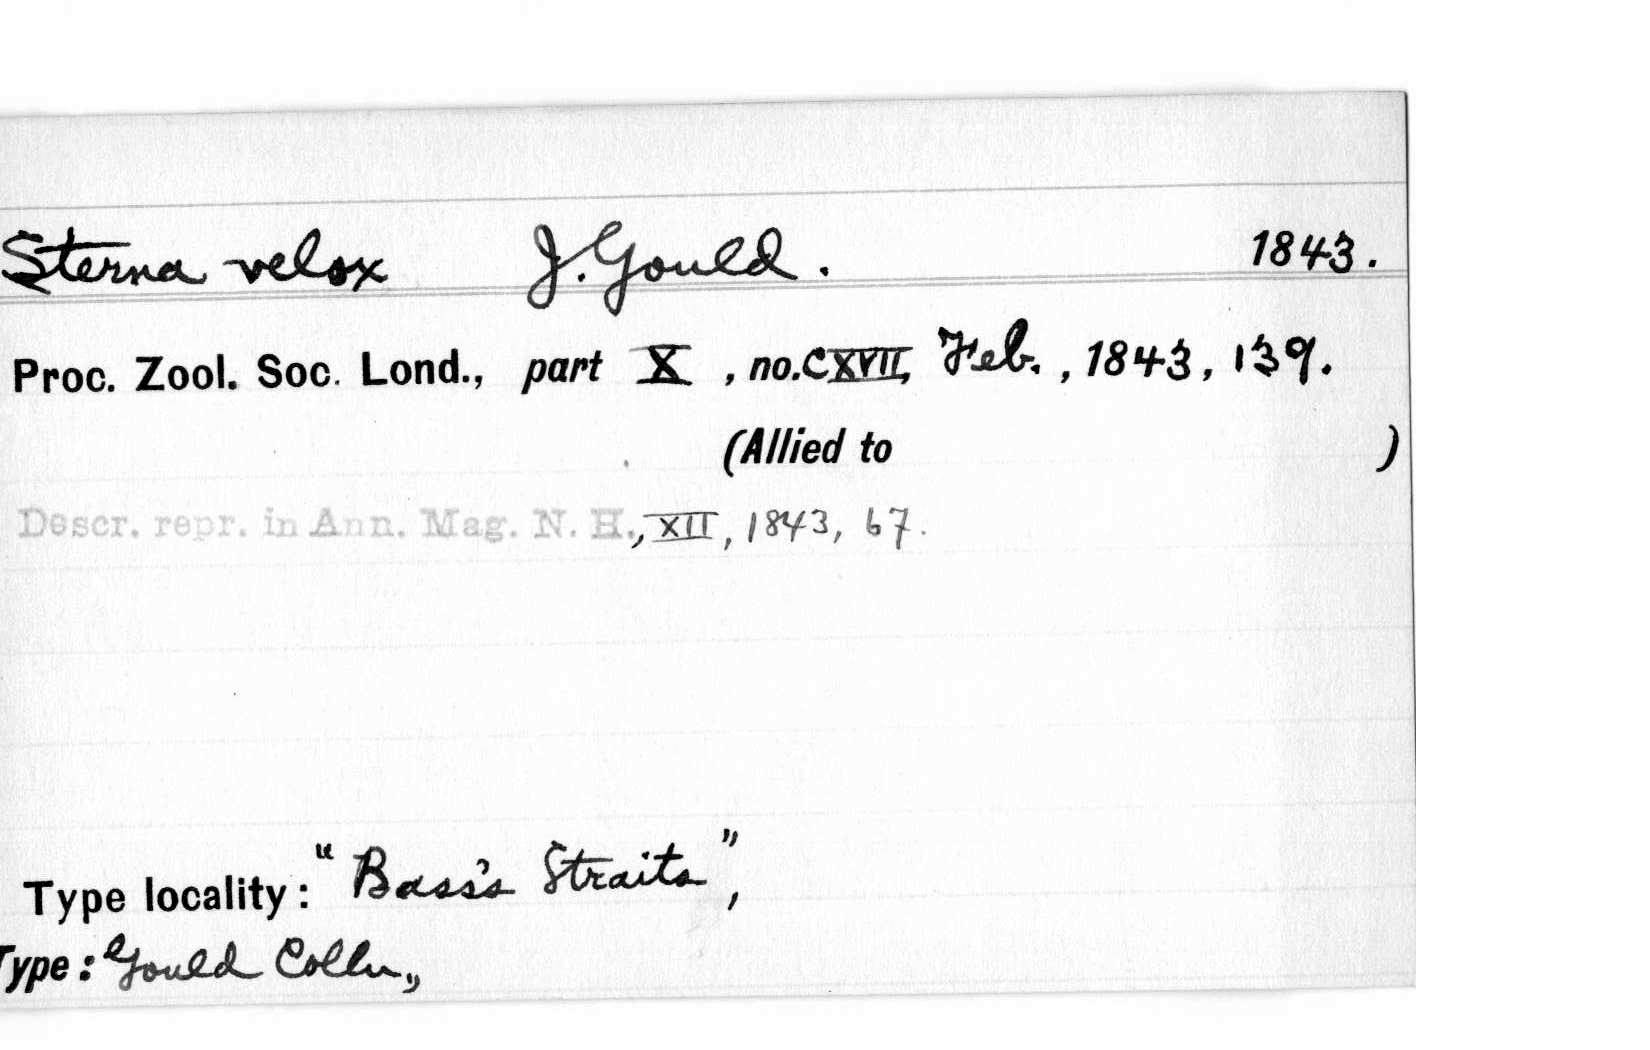 Sterna velox J. Gould. 1843.
Proc. Zool. Soc. Lond., part X, no. CXVII, Feb., 1843, 139.
(Allied to )
Descr. repr. in Ann. Mag. N. H., XII, 1843, 67.
Type locality: "Bass's Straits",
Type: Gould Colln.,